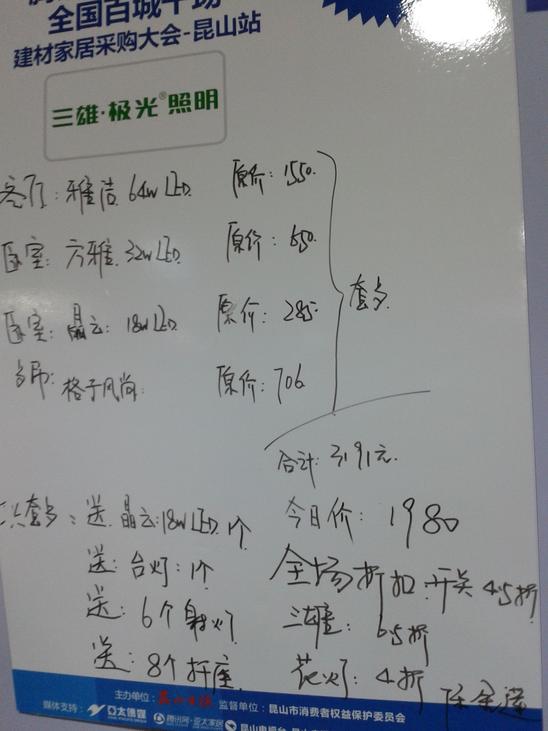 全国百城千场
建材家居采购大会-昆山站
三雄·极光®照明
客厅: 雅洁 64w LED 原价: 1550.
卧室: 方雅 32w LED 原价: 650.
卧室: 晶云: 18w LED 原价: 285
格子风尚 原价: 706
套多
合计: 3191元.
送 晶云: 18w LED 1个 今日价: 1980
送: 台灯: 1个 全场折扣 开关 4.5折
送: 6个射灯 三雄: 6.5折
送: 8个插座 花灯: 4折
主办单位: 监督单位: 昆山市消费者权益保护委员会
媒体支持: 亚太传媒 腾讯网·亚太家居